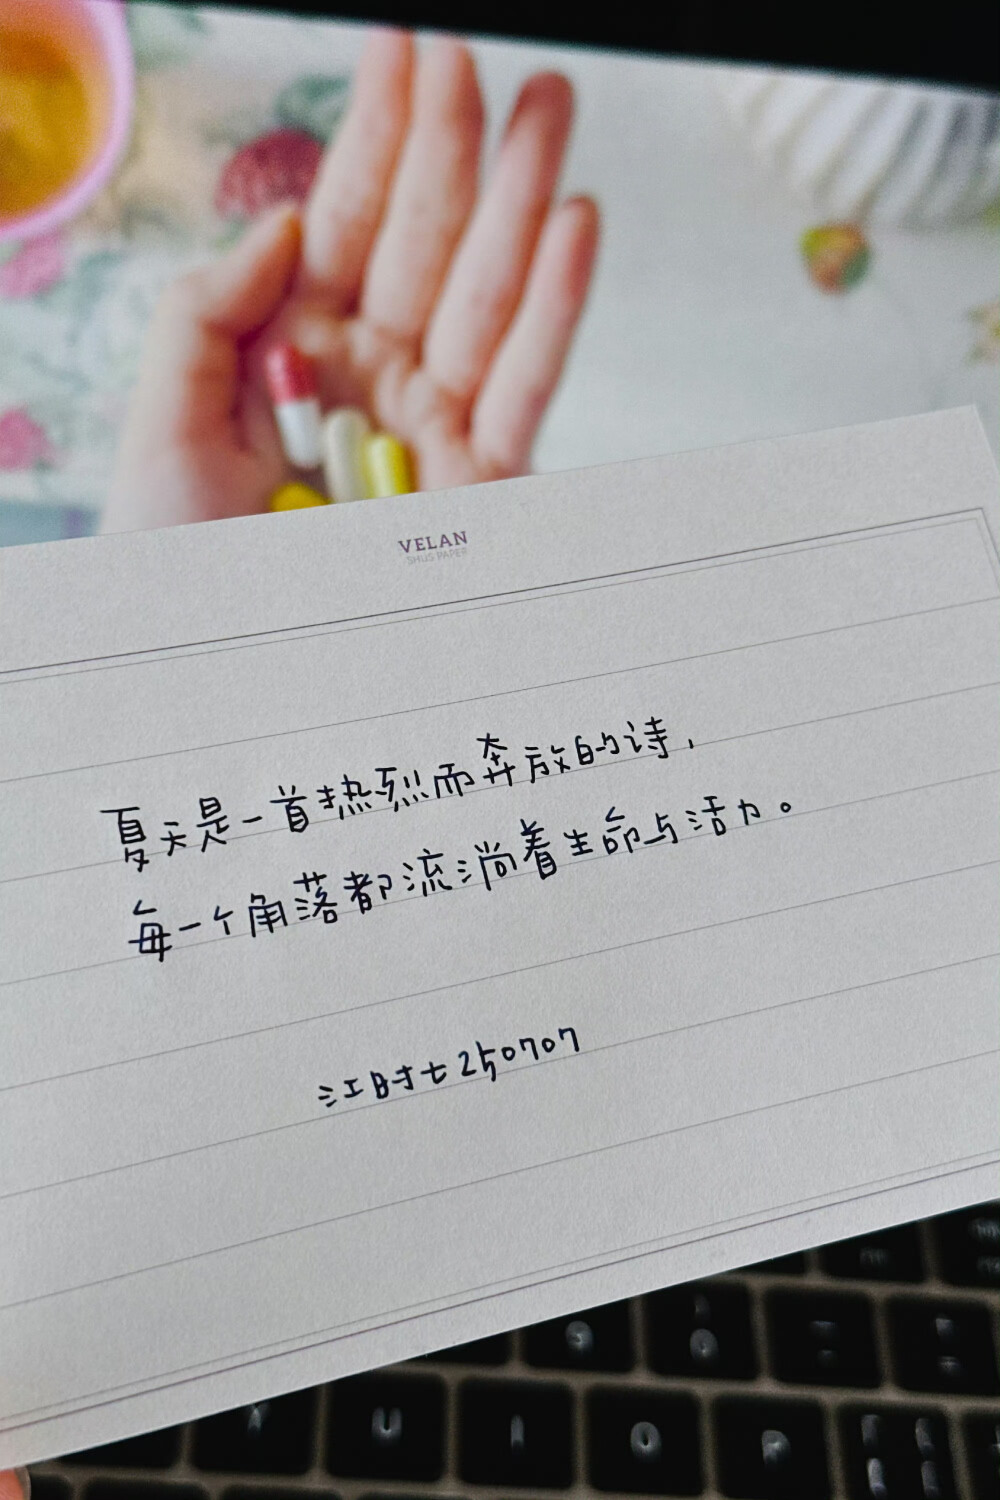 VELAN
SHUS PAPER
夏天是一首热烈而奔放的诗,
每一个角落都流淌着生命与活力。
江时七250707
9
0
Y
U
I
O
P